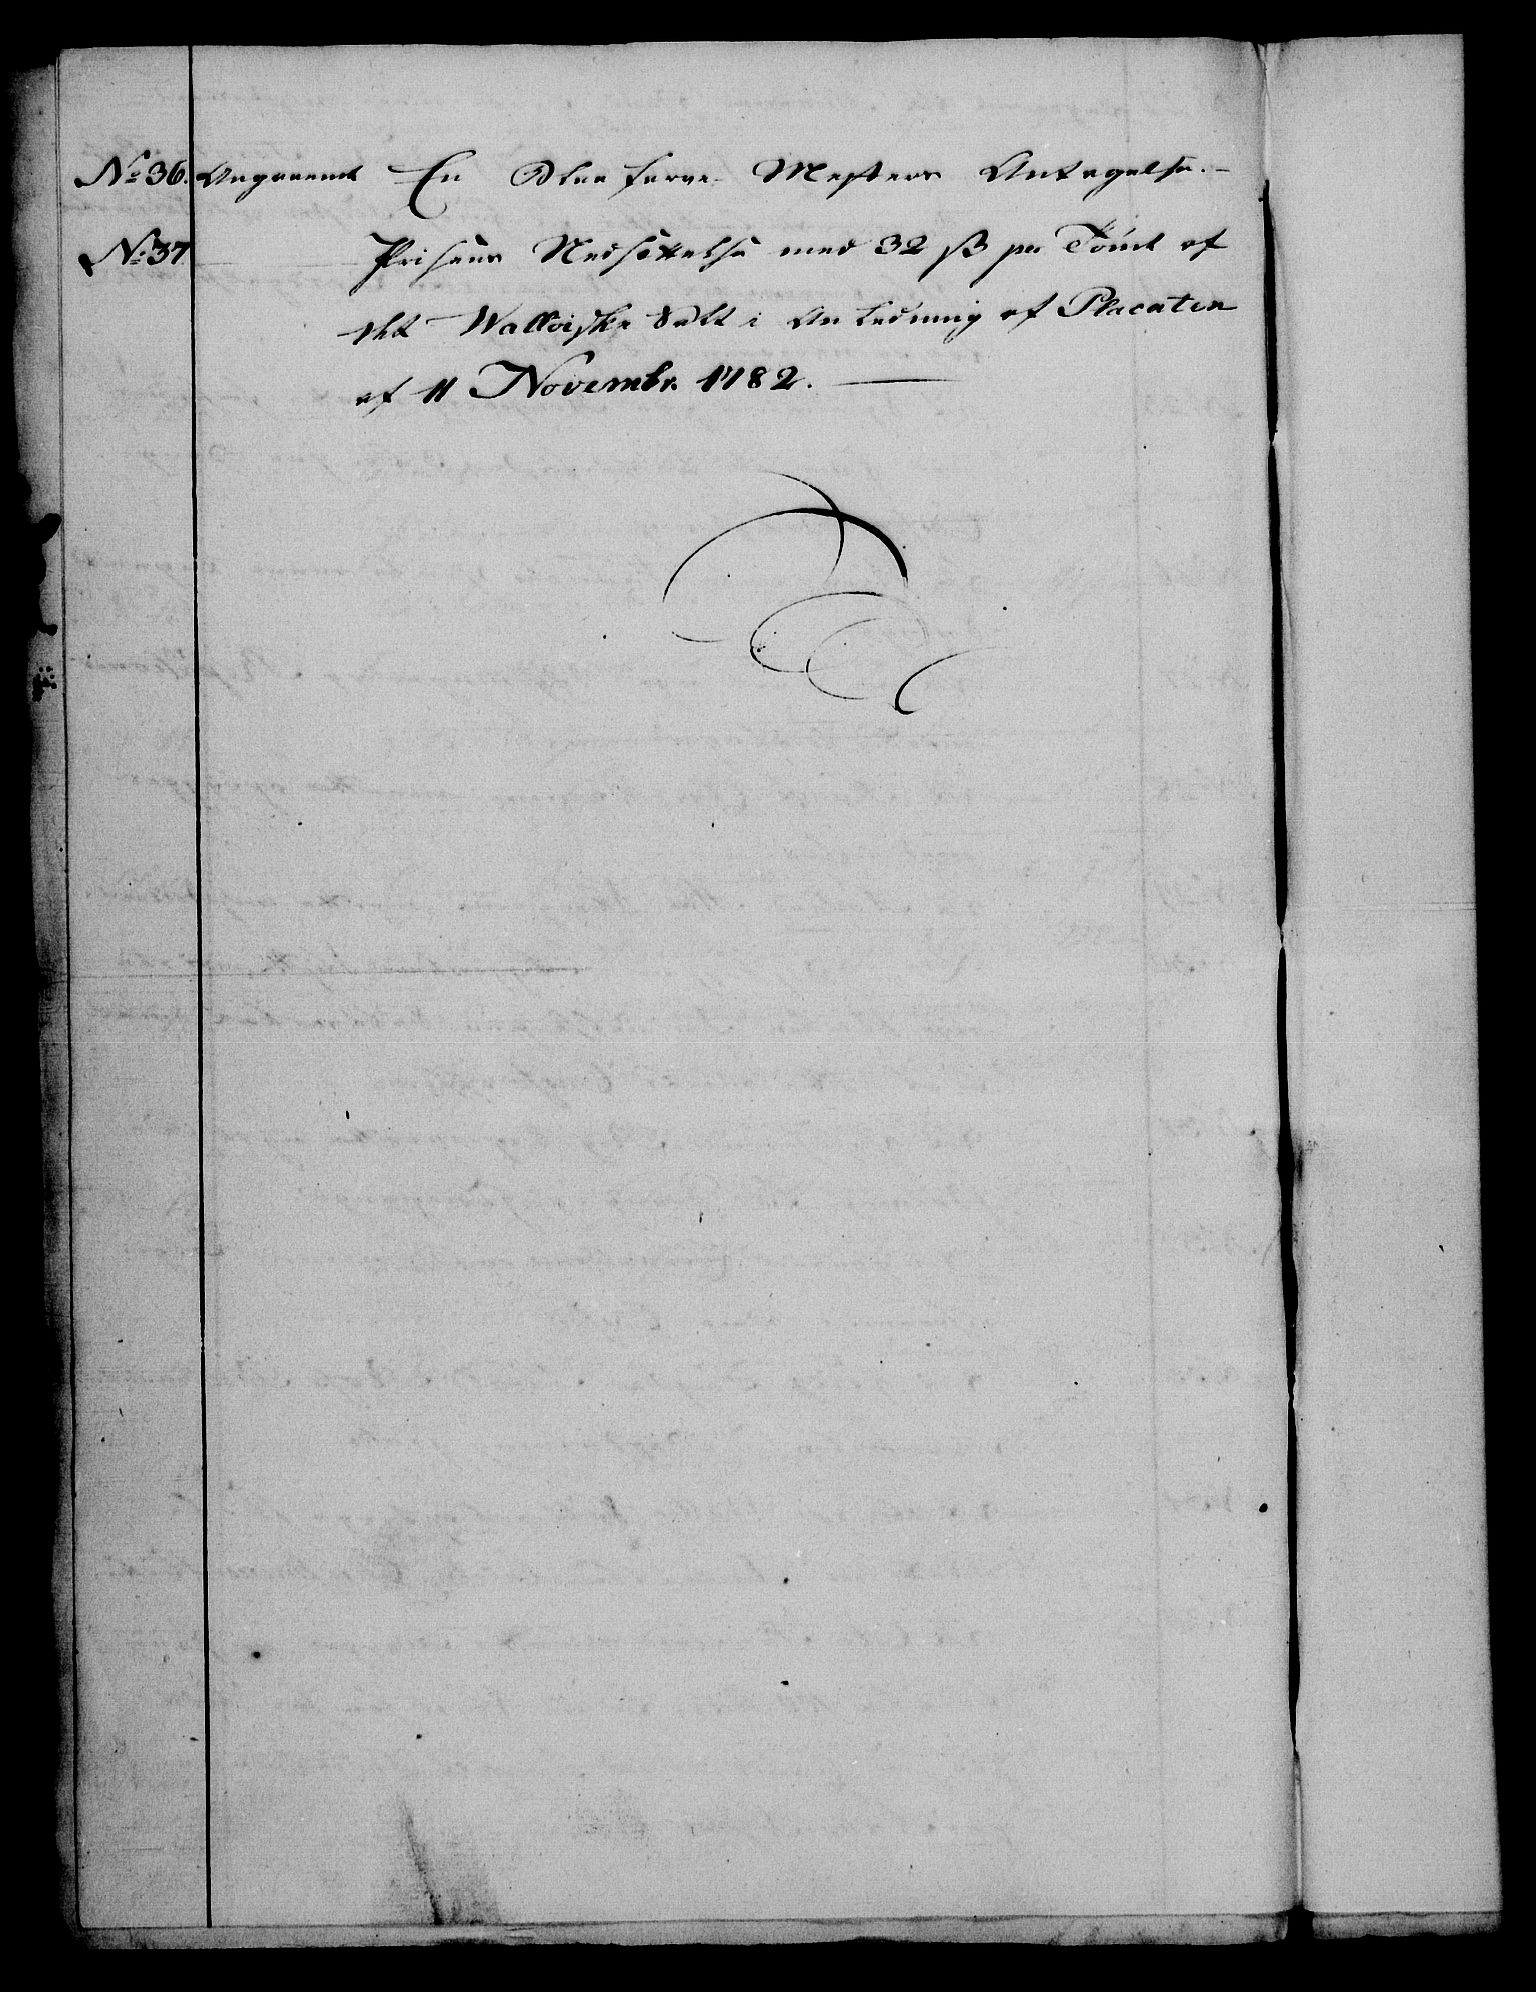 No 36. Angaaende En Blaa farve Mesters Antagelse. –
No 37 Prisens Nedsættelse med 32 ß pr Tönde af
det Walløiske Salt i Anledning af Placaten
af 11 Novembr. 1782. —